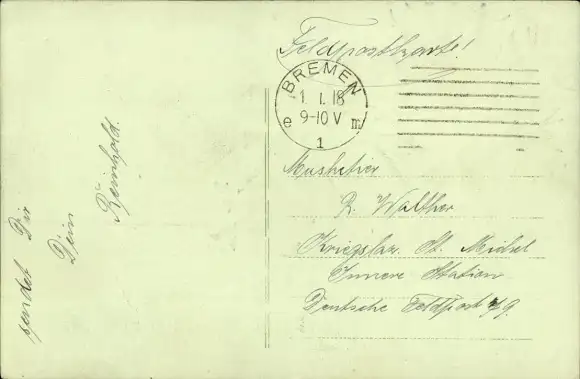 sendet Dir
Dein
Reinhold.
Feldpostkarte!
BREMEN
1.1.18
9-10 V
e m
1
Musketier
R. Walther
Kriegslaz. St. Michel
Innere Station
Deutsche Feldpost